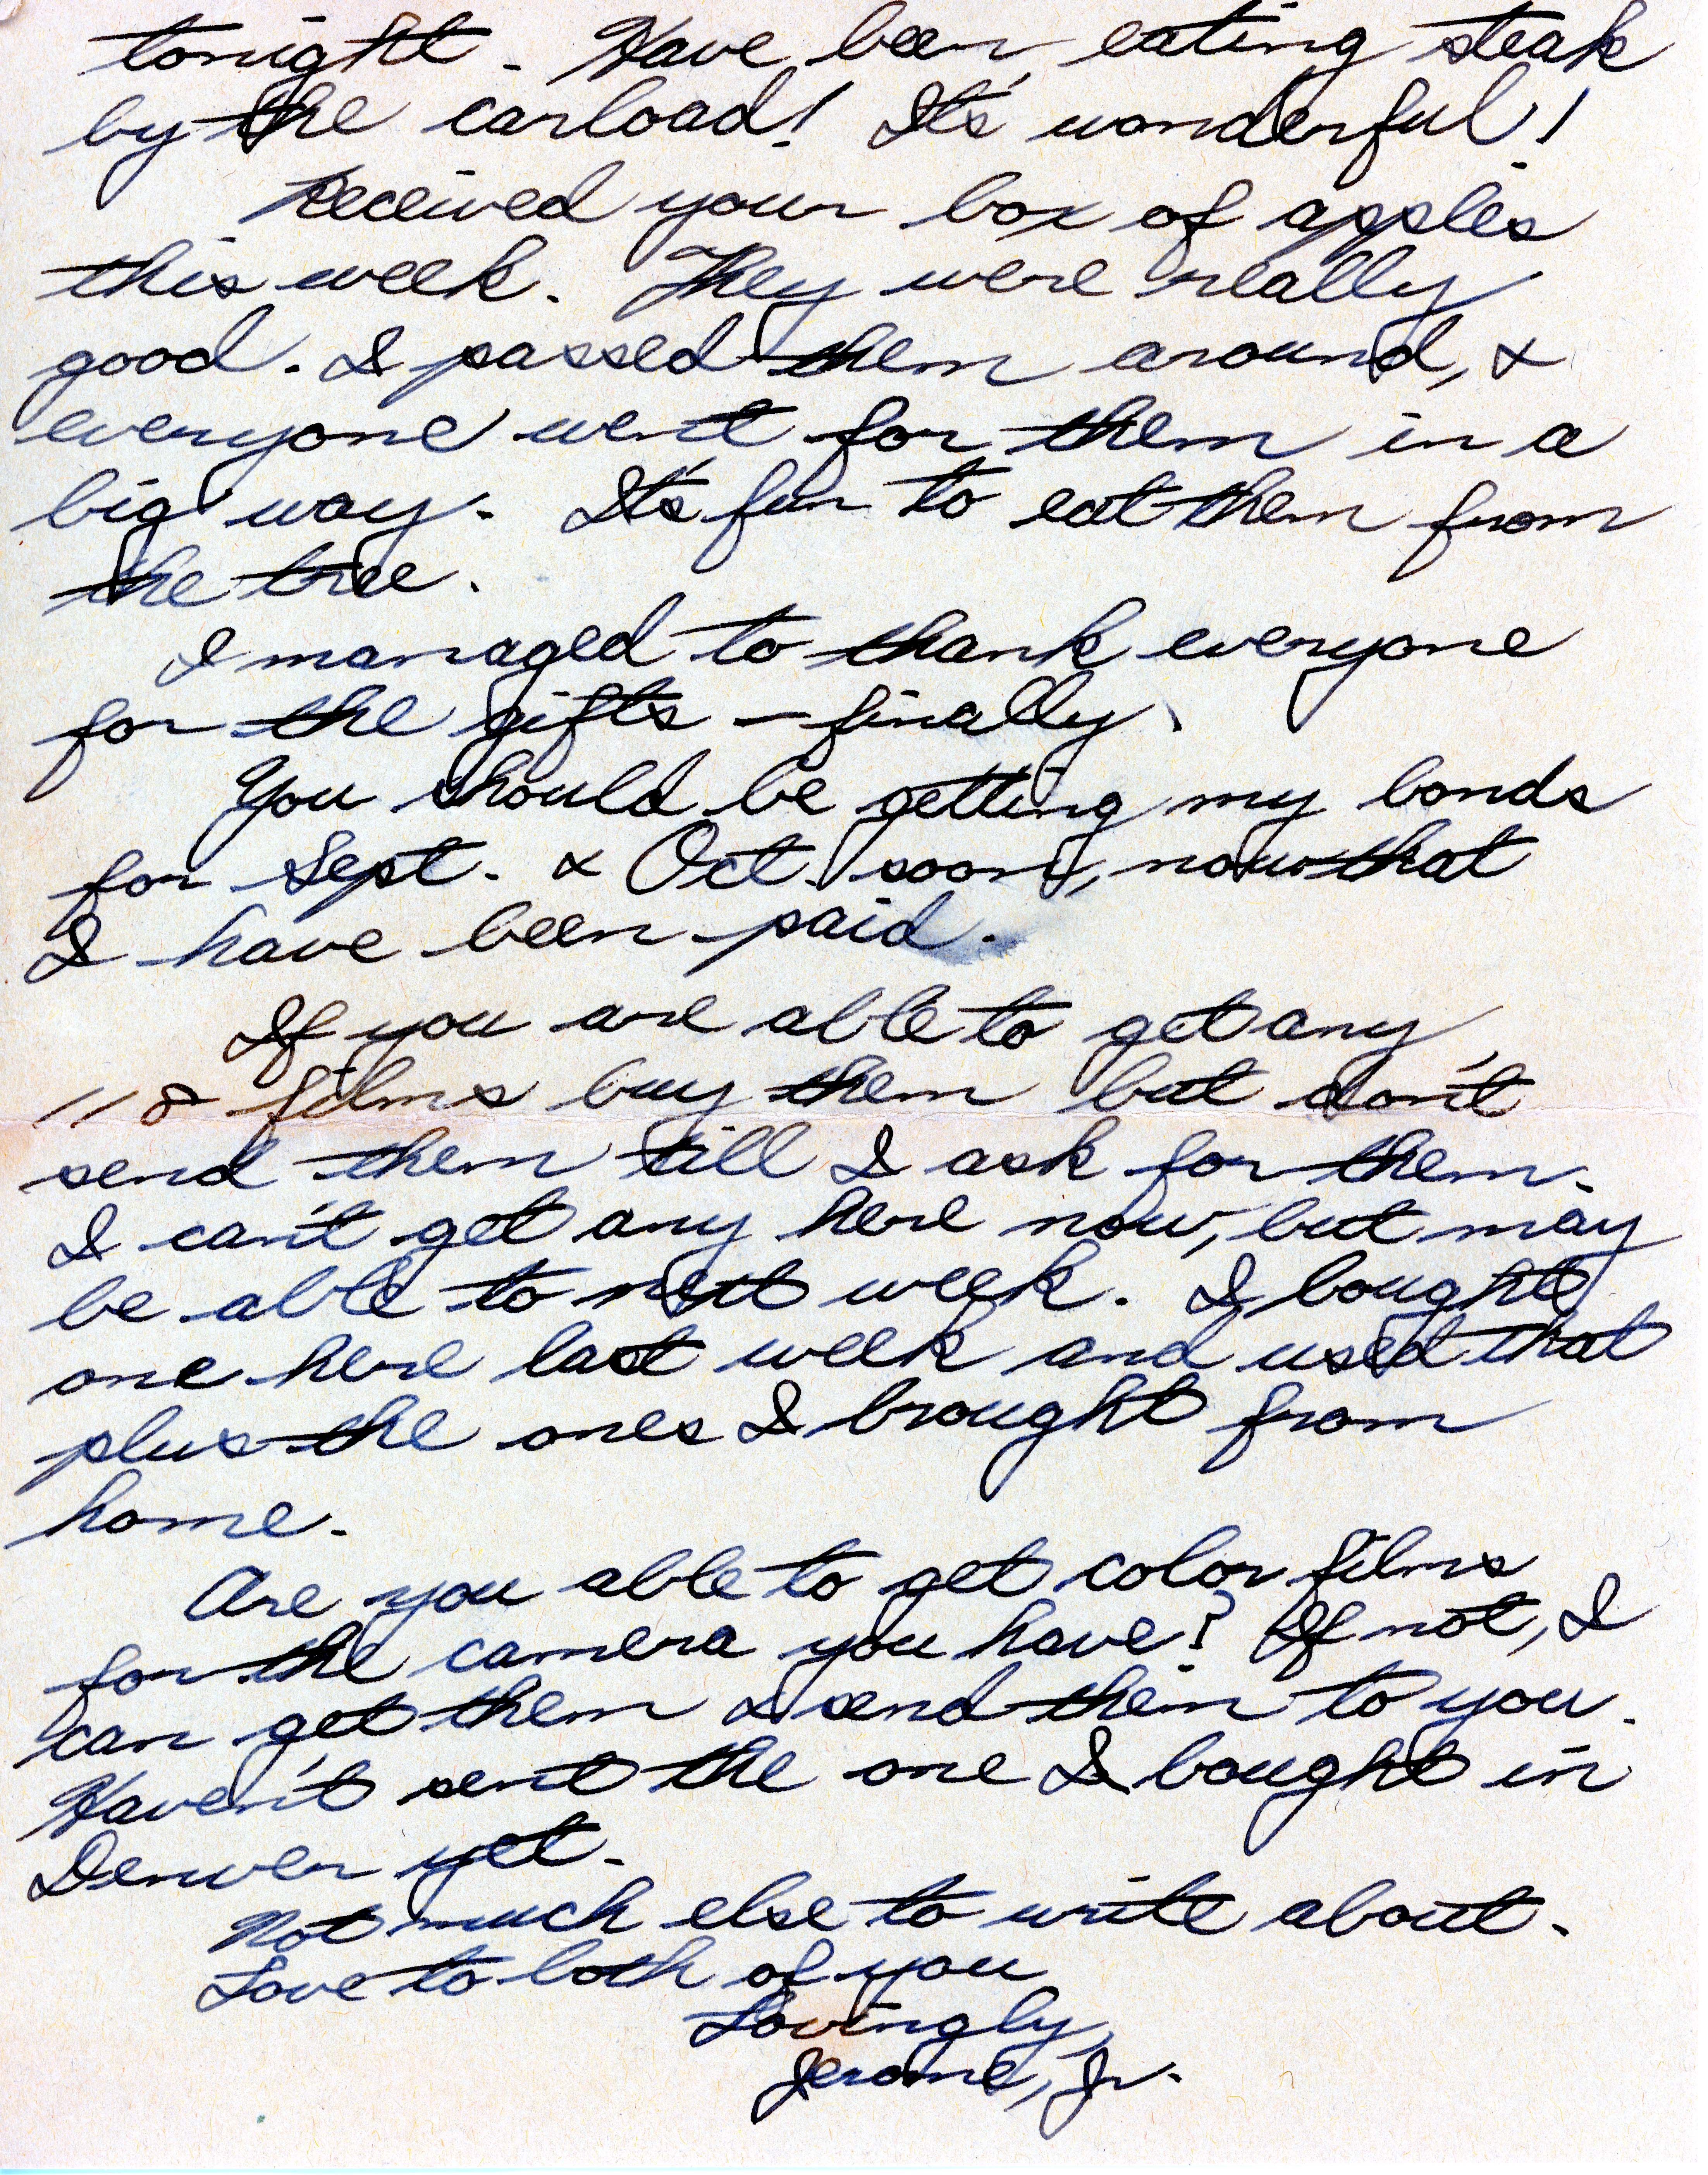 tonight. Have been eating steak
by the carload! It's wonderful!
Received your box of apples
this week. They were really
good. I passed them around, &
everyone went for them in a
big way. It's fun to eat them from
the tree.
I managed to thank everyone
for the gifts - finally.
You should be getting my bonds
for Sept. & Oct. soon, now that
I have been paid.
If you are able to get any
118 films buy them but don't
send them till I ask for them.
I can't get any here now, but may
be able to next week. I bought
one here last week and used that
plus the ones I brought from
home.
Are you able to get color films
for the camera you have? If not, I
can get them & send them to you.
Haven't sent the one I bought in
Denver yet.
Not much else to write about.
Love to both of you
Lovingly,
Jerome, Jr.